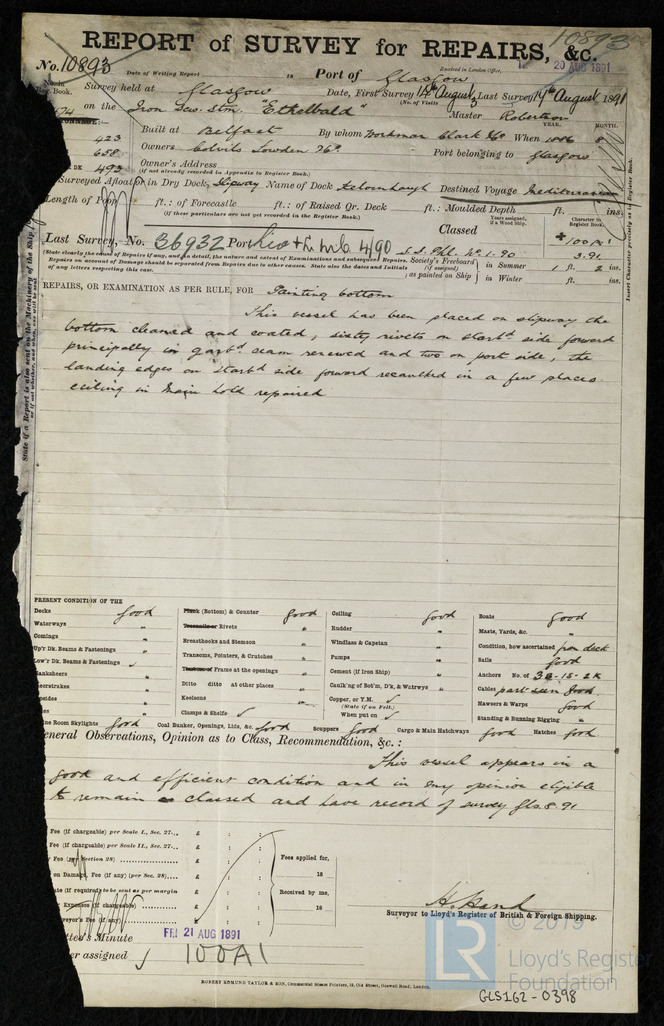 10893
REPORT of SURVEY for REPAIRS, &c.
No. 10893 Date of Writing Report 18 Port of Glasgow Received in London Office, 20 AUG 1891
No. in Reg. Book. Survey held at Glasgow Date, First Survey 14th August Last Survey 14th August 1891
(No. of Visits
on the Iron Scw. Stm. "Ethelbald" Master Robertson
YEAR. MONTH.
423 Built at Belfast By whom Workman Clark & Co When 1886 8
658 Owners Colvils Lowden & Co. Port belonging to Glasgow
493 Owner's Address
(if not already recorded in Appendix to Register Book.)
Surveyed Afloat or in Dry Dock, Slipway Name of Dock Kelvinhaugh Destined Voyage Mediterranean
Length of Poop ft.: of Forecastle ft.: of Raised Qr. Deck ft.: Moulded Depth ft. ins.
(if these particulars are not yet recorded in the Register Book.)
Classed
Years assigned, if a Wood Ship. Character in Register Book.
+100A1
3.91
Last Survey, No. 36932 Port 4/90 S.S. No. 1. 90
(State clearly the causes of Repairs if any, and, in detail, the nature and extent of Examinations and subsequent Repairs.
Repairs on account of Damage should be separated from Repairs due to other causes. State also the dates and Initials
of any letters respecting this case.
Society's Freeboard (if assigned) as painted on Ship in Summer 1 ft. 2 ins.
in Winter ft. ins.
Insert Character precisely as in Register Book.
State if a Report is also sent on the Machinery of the Ship
REPAIRS, OR EXAMINATION AS PER RULE, FOR Painting bottom
This vessel has been placed on slipway the
bottom cleaned and coated, sixty rivets on starbd side forward
principally in garbd seam renewed and two on port side, the
landing edges on starbd side forward recaulked in a few places
ceiling in Main hold repaired
PRESENT CONDITION OF THE
Decks good
Waterways "
Comings "
Up'r Dk. Beams & Fastenings "
Low'r Dk. Beams & Fastenings
Planksheers "
Sheerstrakes "
Topsides "
Plank (Bottom) & Counter good
Treenails or Rivets "
Breasthooks and Stemson "
Transoms, Pointers, & Crutches "
Timbers of Frame at the openings "
Ditto ditto at other places "
Keelsons "
Clamps & Shelfs
Ceiling good
Rudder "
Windlass & Capstan "
Pumps "
Cement (if Iron Ship) "
Caulk'ng of Bot'm, D'k, & Watrwys "
Copper, or Y.M.
(State if on Felt.)
When put on
Boats good
Masts, Yards, &c. "
Condition, how ascertained from deck
Sails good
Anchors No. of 3B-1S-2K
Cables part seen good
Hawsers & Warps good
Standing & Running Rigging "
Engine Room Skylights good Coal Bunker, Openings, Lids, &c. good Scuppers good Cargo & Main Hatchways good Hatches good
General Observations, Opinion as to Class, Recommendation, &c. :
This vessel appears in a
good and efficient condition and in my opinion eligible
to remain as classed and have record of survey Gls. 8.91
Fee (if chargeable) per Scale I., Sec. 27... £ : :
Fee (if chargeable) per Scale II., Sec. 27... £ : :
Fee (per Section 28) £ : :
on Damage Fee (if any) (per Sec. 28)... £ : :
(if required to be sent as per margin £ : :
Expenses (if chargeable) £ : :
Surveyor's Fee (if any) £
Fees applied for,
18
Received by me,
18
H. Hand
Surveyor to Lloyd's Register of British & Foreign Shipping.
Committee's Minute FRI 21 AUG 1891
Character assigned 100A1
ROBERT EDMUND TAYLOR & SON, Commercial Steam Printers, 19, Old Street, Goswell Road, London.
© 2019
LR
Lloyd's Register
Foundation
GLS162-0398